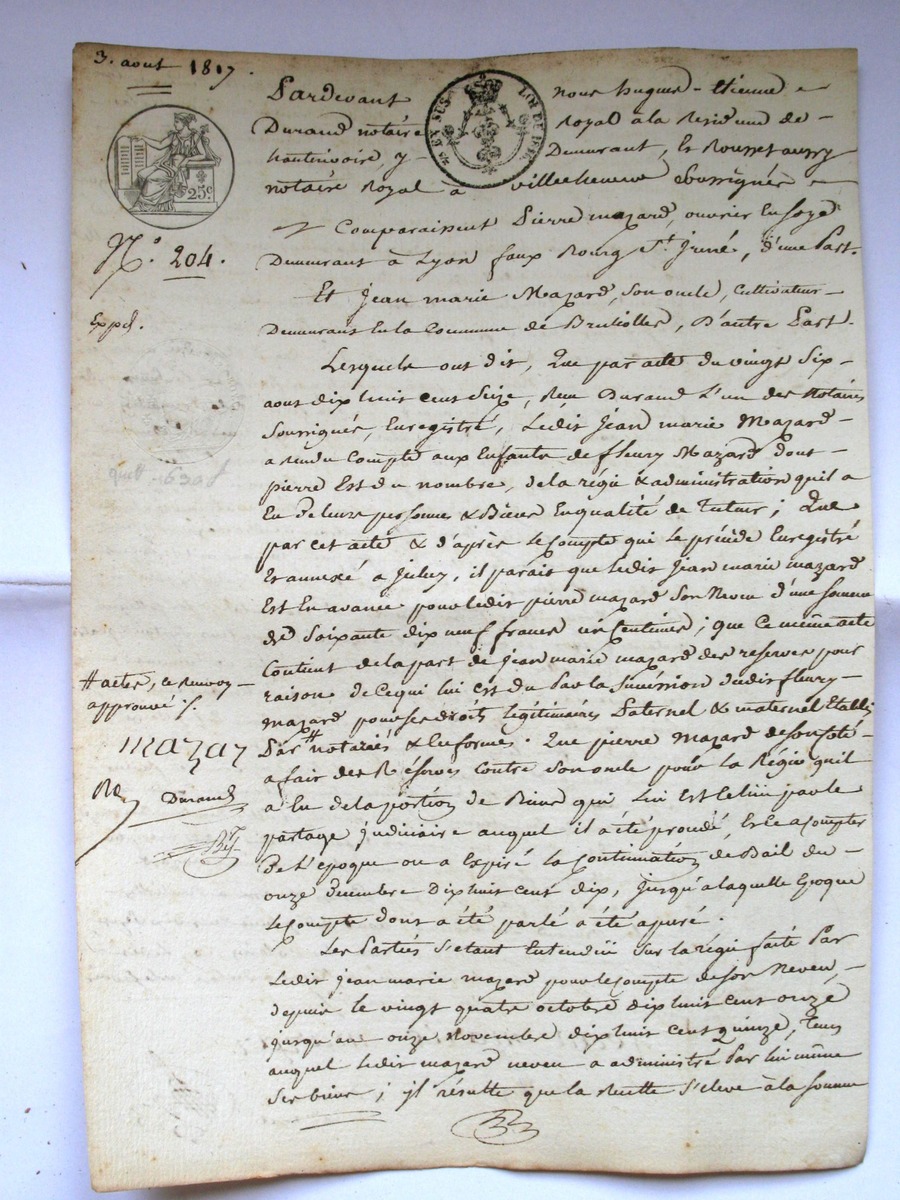 3. aout 1817.
Pardevant nous hugues-Etienne
Durand notaire Royal à la Residence de
hauterivoire, y Demeurant, Et Rousset aussy
notaire Royal à villechenève Soussignés
Comparaissent Pierre mazard, ouvrier En soye
Demeurant à Lyon faux Bourg St. Jrené, d'une Part.
Et Jean marie Mazard, son oncle, Cultivateur
Demeurant En la Commune de Bruliolles, D'autre Part.
Lesquels ont dit, Que par acte du vingt Six
aout dix huit cent Seize, Reçu Durand L'un des Notaires
Soussignés, Enregistré, Ledit Jean marie Mazard
a rendu Compte aux Enfants de fleury Mazard dont
pierre Est du nombre, de la régie & administration qu'il a
Eu De leurs personnes & Biens En qualité de Tuteur ; Que
par cet acte & d'après Le Compte qui Le précède Enregistré
Et annexé a jcelui, il parait que Ledit Jean marie mazard
Est En avance pour Ledit pierre mazard Son Neveu d'une somme
de Soixante dix neuf francs un Centime ; que Ce même acte
Contient de la part de jean marie mazard des reserves pour
raison de Ce qui lui est du Par la Succession dudit fleury
mazard pour ses droits Légitimaires Paternel & maternel Etablis
Par # notariés & En forme. Que pierre Mazard de son coté
a fait des Réserves Contre Son oncle pour La Régie qu'il
a Eu de la portion de Biens qui Lui est échu par le
partage judiciaire auquel il a été procédé, Et Ce a Compter
De L'époque ou a Expiré La Continuation de Bail du
onze Decembre Dix huit cent dix, jusqu'a laquelle Epoque
Le Compte dont a été parlé a été apuré.
Les Parties S'etant Entendües Sur la régie faite Par
Ledit jean marie mazard pour le Compte de son Neveu,
depuis Le vingt quatre octobre dix huit cent onze
jusqu'au onze Novembre dix huit cent Quinze, tems
auquel Ledit mazard neveu a administré Par lui même
Ses biens ; il résulte que la Recette S'éleve à la somme
25c
LOI DE
No. 204.
Expéd.
# actes, ce Renvoy
approuvé
mazar
Durand